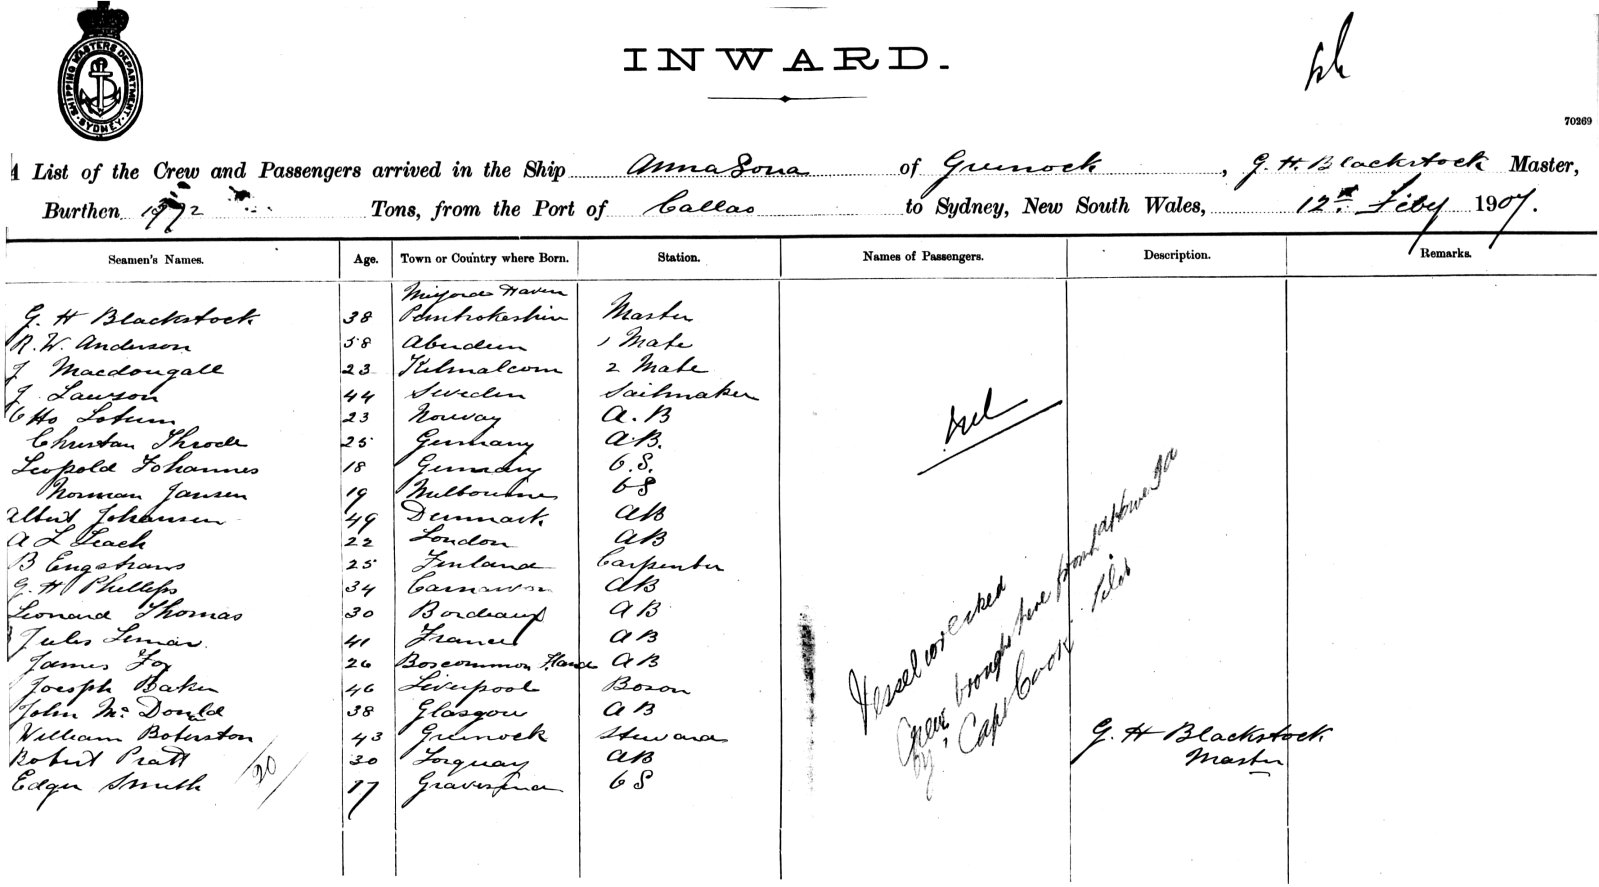 SHIPPING MASTERS DEPARTMENT
SYDNEY
INWARD.
70269
A List of the Crew and Passengers arrived in the Ship Annasona of Greenock, G. H. Blackstock Master,
Burthen Tons, from the Port of Callao to Sydney, New South Wales, 12th Feby 1907.
Seamen's Names. Age. Town or Country where Born. Station. Names of Passengers. Description. Remarks.
Milford Haven
G. H Blackstock 38 Pembrokeshire Master
R. W. Anderson 58 Aberdeen 1 Mate
J Macdougall 23 Kilmalcom 2 Mate
J. Lawson 44 Sweden Sailmaker
Otto 23 Norway A.B
Christan Throde 25 Germany A.B.
Leopold Johannes 18 Germany O.S.
Norman Jansen 19 Melbourne OS
Albert Johansen 49 Denmark AB
A L Leach 22 London AB
B Engstraws 25 Finland Carpenter
G. H Phelleps 34 Carnarvon AB
Leonard Thomas 30 Bordeaux AB
Jules Lemar 41 France AB
James Fox 26 Boscommon AB
Joesph Baker 46 Liverpool Boson
John McDonald 38 Glasgow AB
William Boterston 43 Greenock Steward
Robert Pratt 30 Torquay AB
Edger Smith 17 Gravesend OS
20
Nil
Vessel wrecked
Crew brought here from
by Capt Cook Pilot
G. H Blackstock
Master